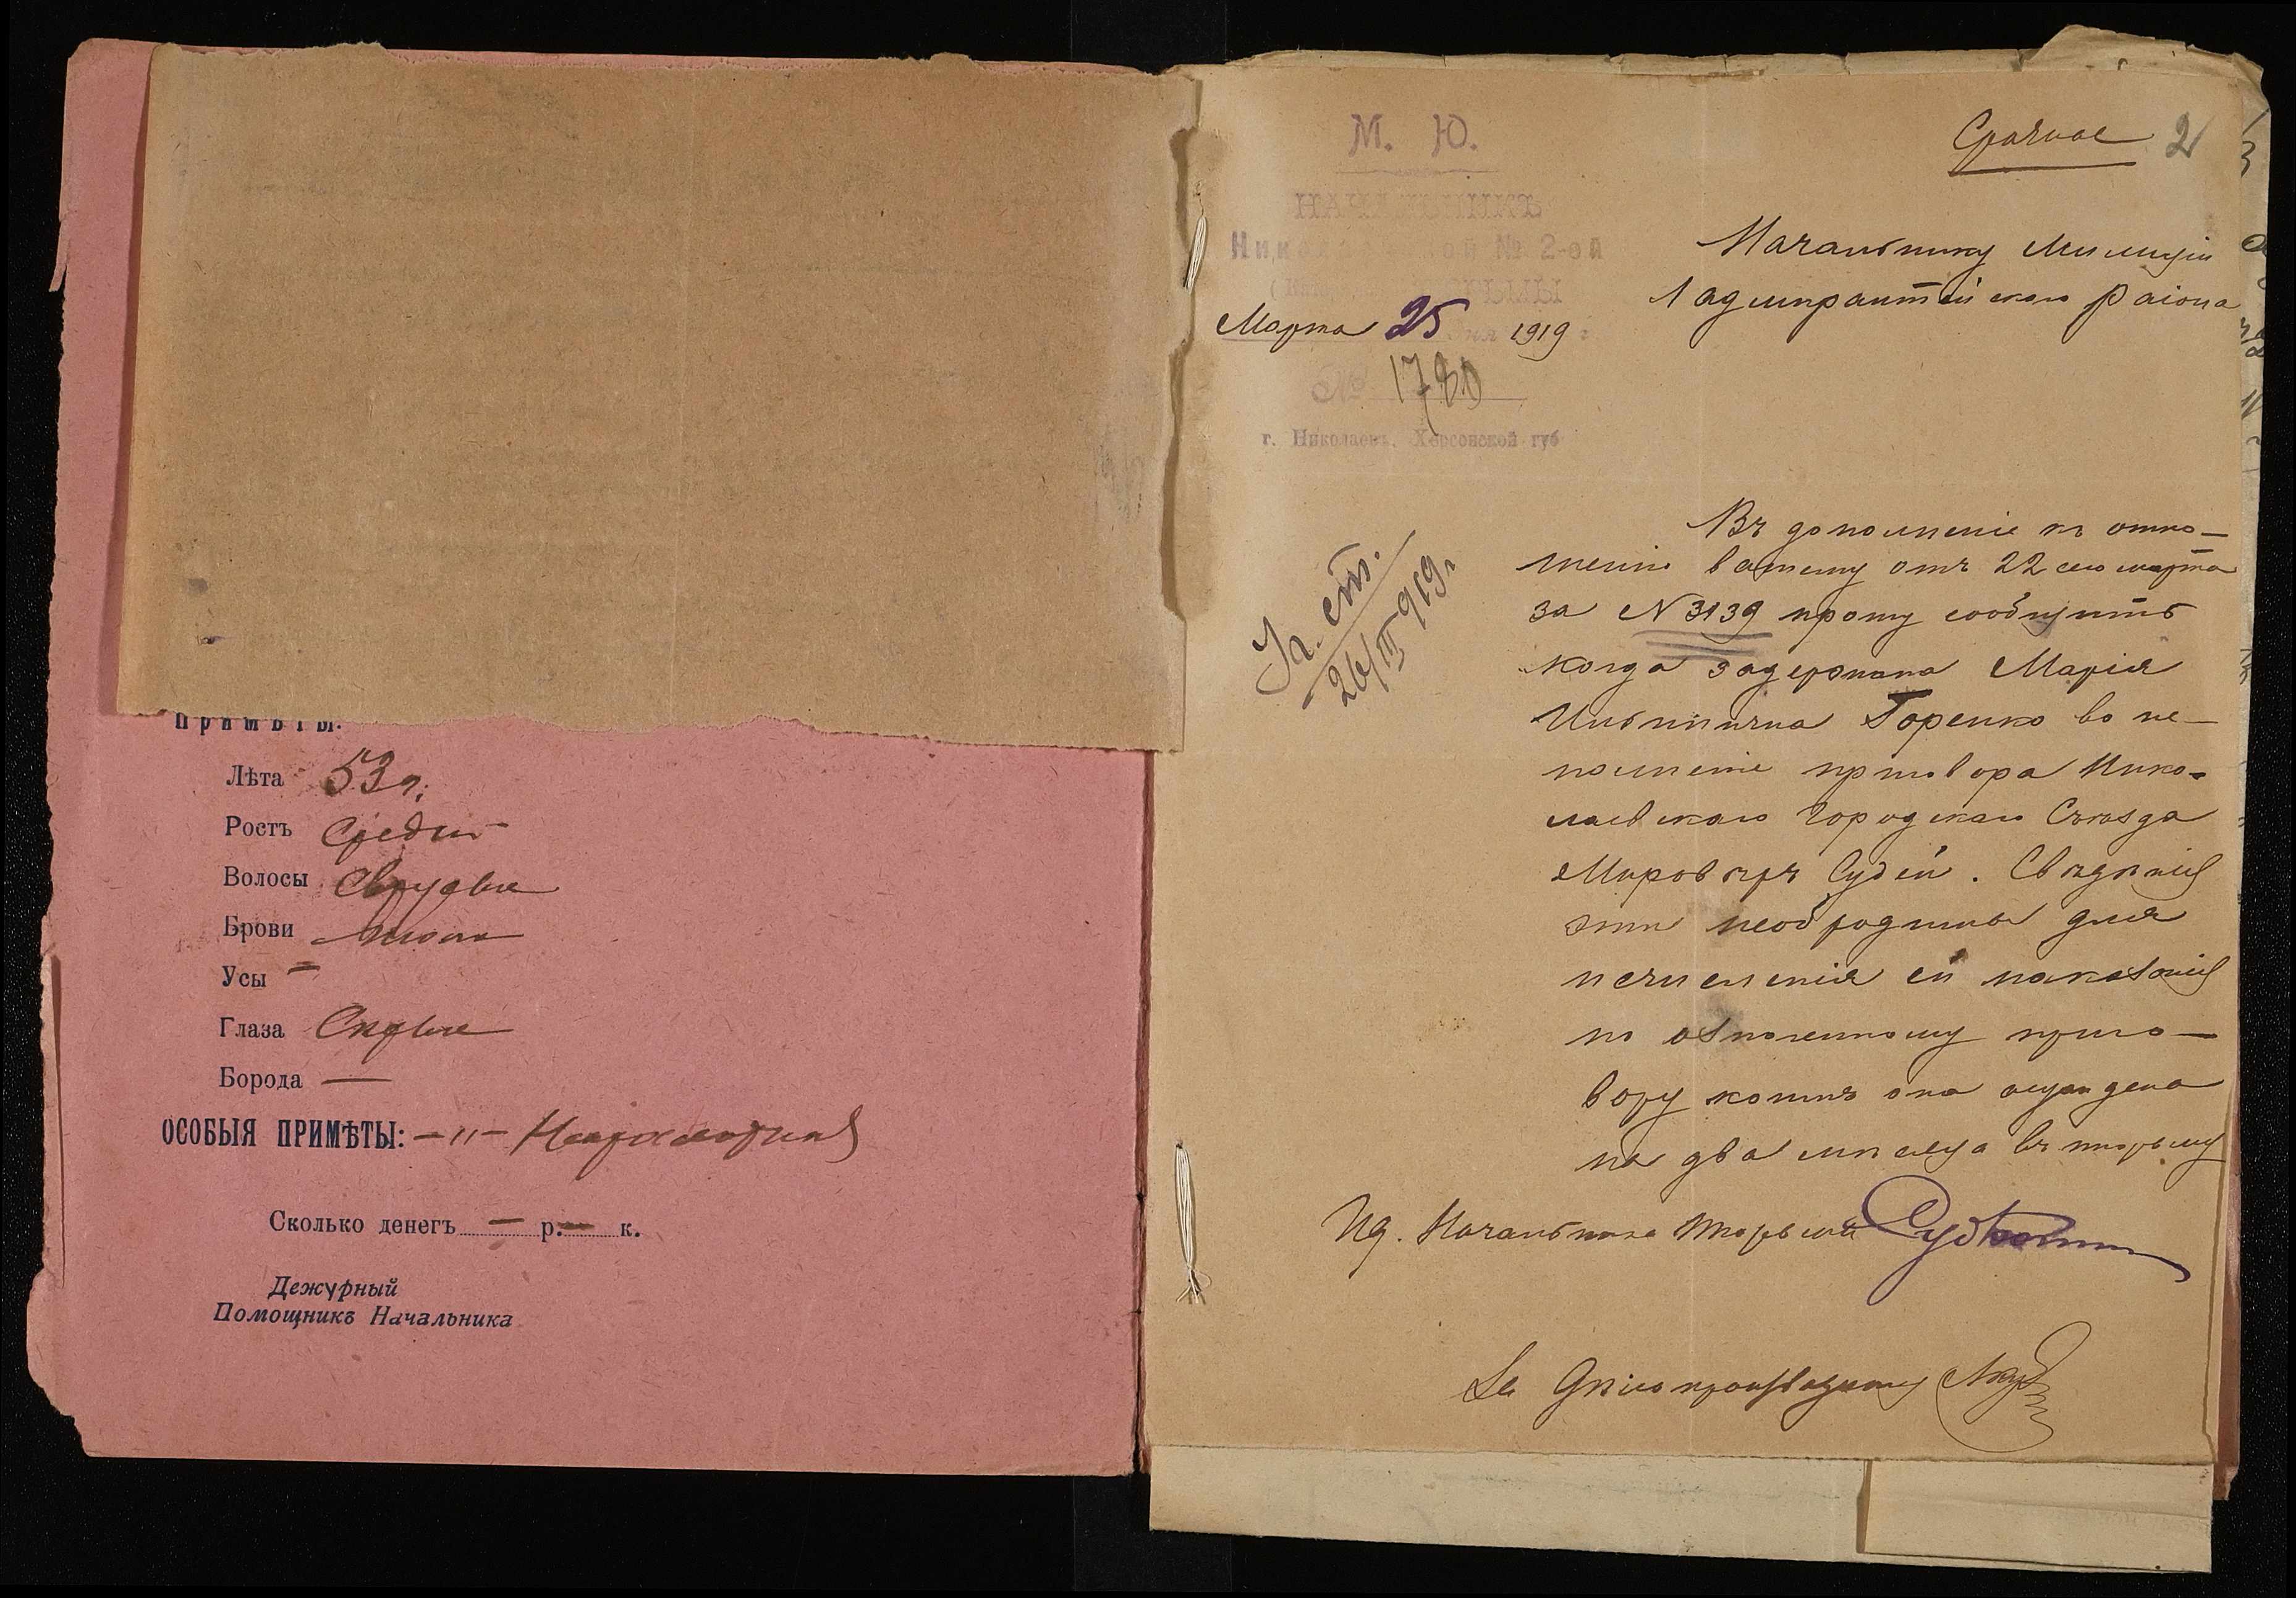 Примѣты:
Лѣта 53 г.
Ростъ Средн
Волосы
Брови
Усы –
Глаза
Борода —
ОСОБЫЯ ПРИМѢТЫ: –"–
Сколько денегъ – р. – к.
Дежурный
Помощникъ Начальника
М. Ю.
НАЧАЛЬНИКЪ
Николаевской № 2-ой
ТЮРЬМЫ
Марта 25 дня 1919 г.
№ 1780
г. Николаевъ, Херсонской губ
Срочное 2
Начальнику Милиціи
1 адмиралтейскаго района
26/III 919 г.
Въ дополненіе къ отно–
шенію вашему отъ 22 сего марта
за N 3139 прошу сообщить
когда задержана Марія
Ильинична Горенко во ис–
полненіе приговора Нико–
лаевскаго Городскаго Съѣзда
Мировыхъ Судей. Свѣдѣнія
эти необходимы для
исчисленія ей наказанія
по означенному приго–
вору коимъ она осуждена
на два мѣсяца въ тюрьму
Ид. Начальника тюрьмы
За Дѣлопроизводителя